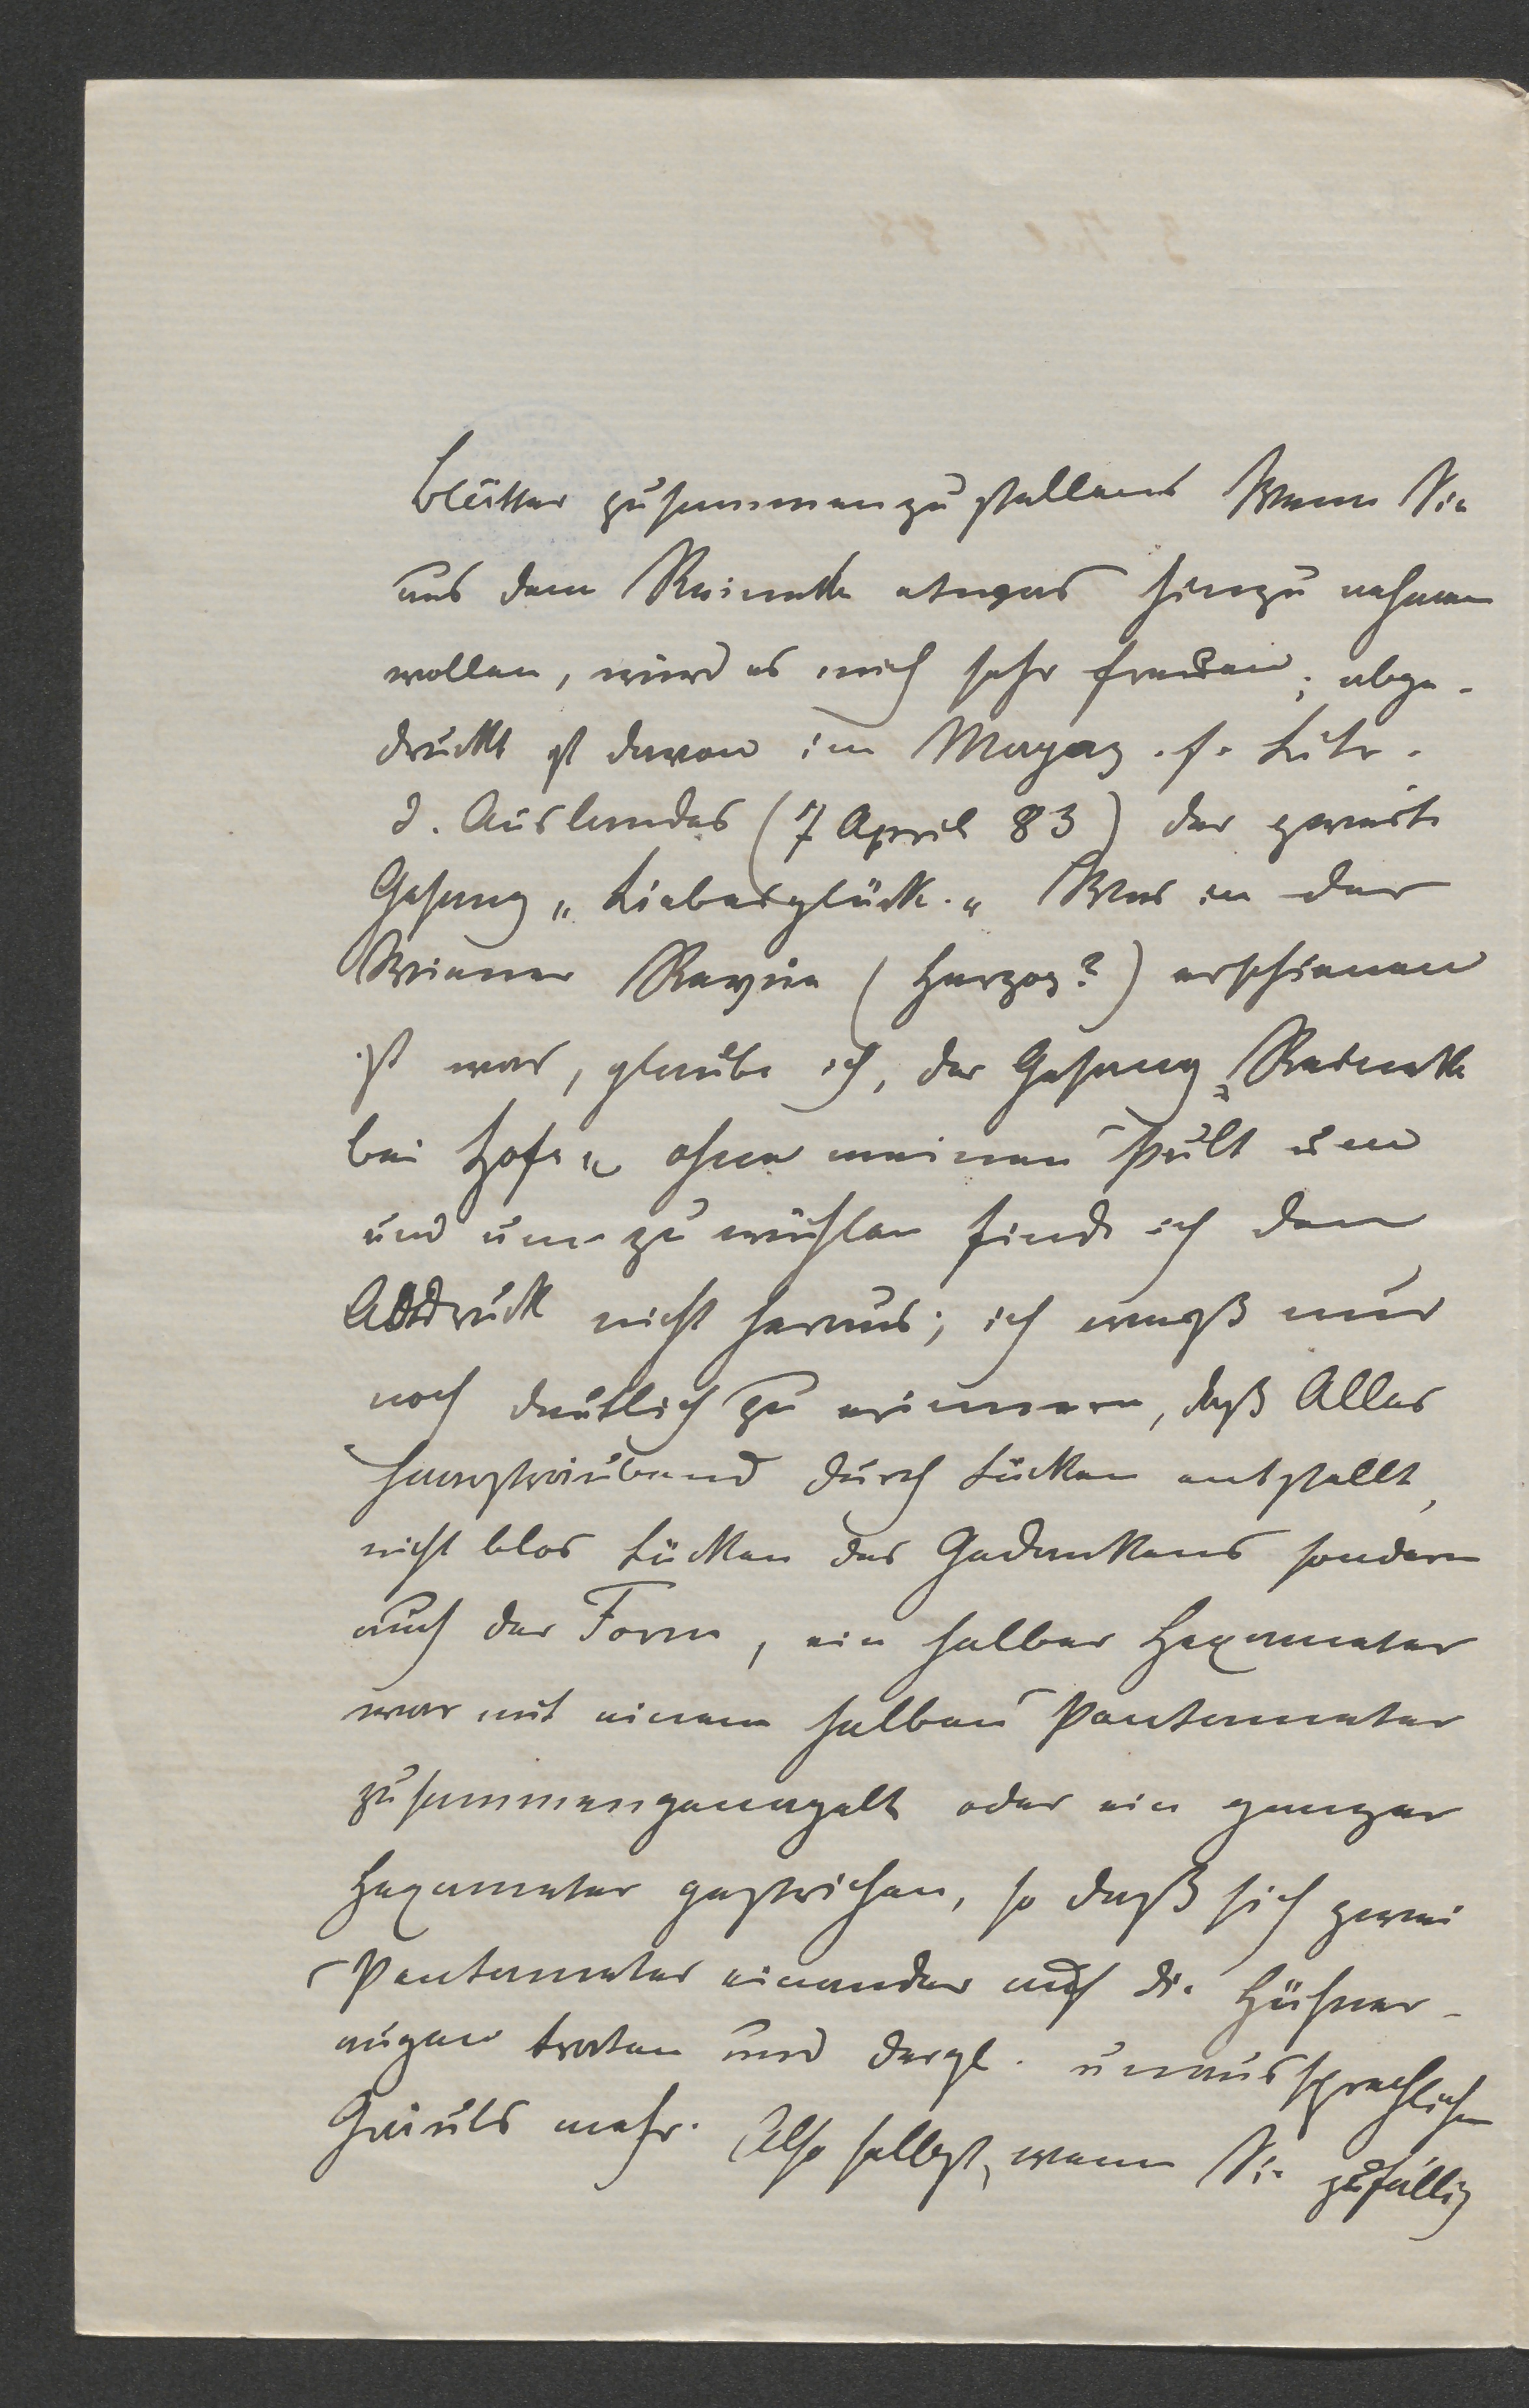 blätter zusammenzustellend Wenn Sie
aus dem Reineke etwas hinzu nehmen
wollen, wird es mich sehr freuen; abge-
druckt ist davon im Magaz. f. Litr.
d. Auslandes (7 April 83) der zweite
Gesang „Liebesglück." Was in der
Wiener Revue (Herzog?) erschienen
ist war, glaube ich, der Gesang „Reineke
bei Hofe" ohne meinen Pult um
und um zu wühlen finde ich den
Abdruck nicht heraus; ich weiß nur
noch deutlich zu erinnern, daß Alles
haarsträubend durch Lücken entstellt,
nicht blos Lücken des Gedankens sondern
auch der Form, ein halber Hexameter
war mit einem halben Pentameter
zusammengenagelt oder ein ganzer
Hexameter gestrichen, so daß sich zwei
Pentameter einander auf die Hühner-
augen traten und dergl. unaussprechlichen
Gräuels mehr. Also selbst, wenn Sie zufällig